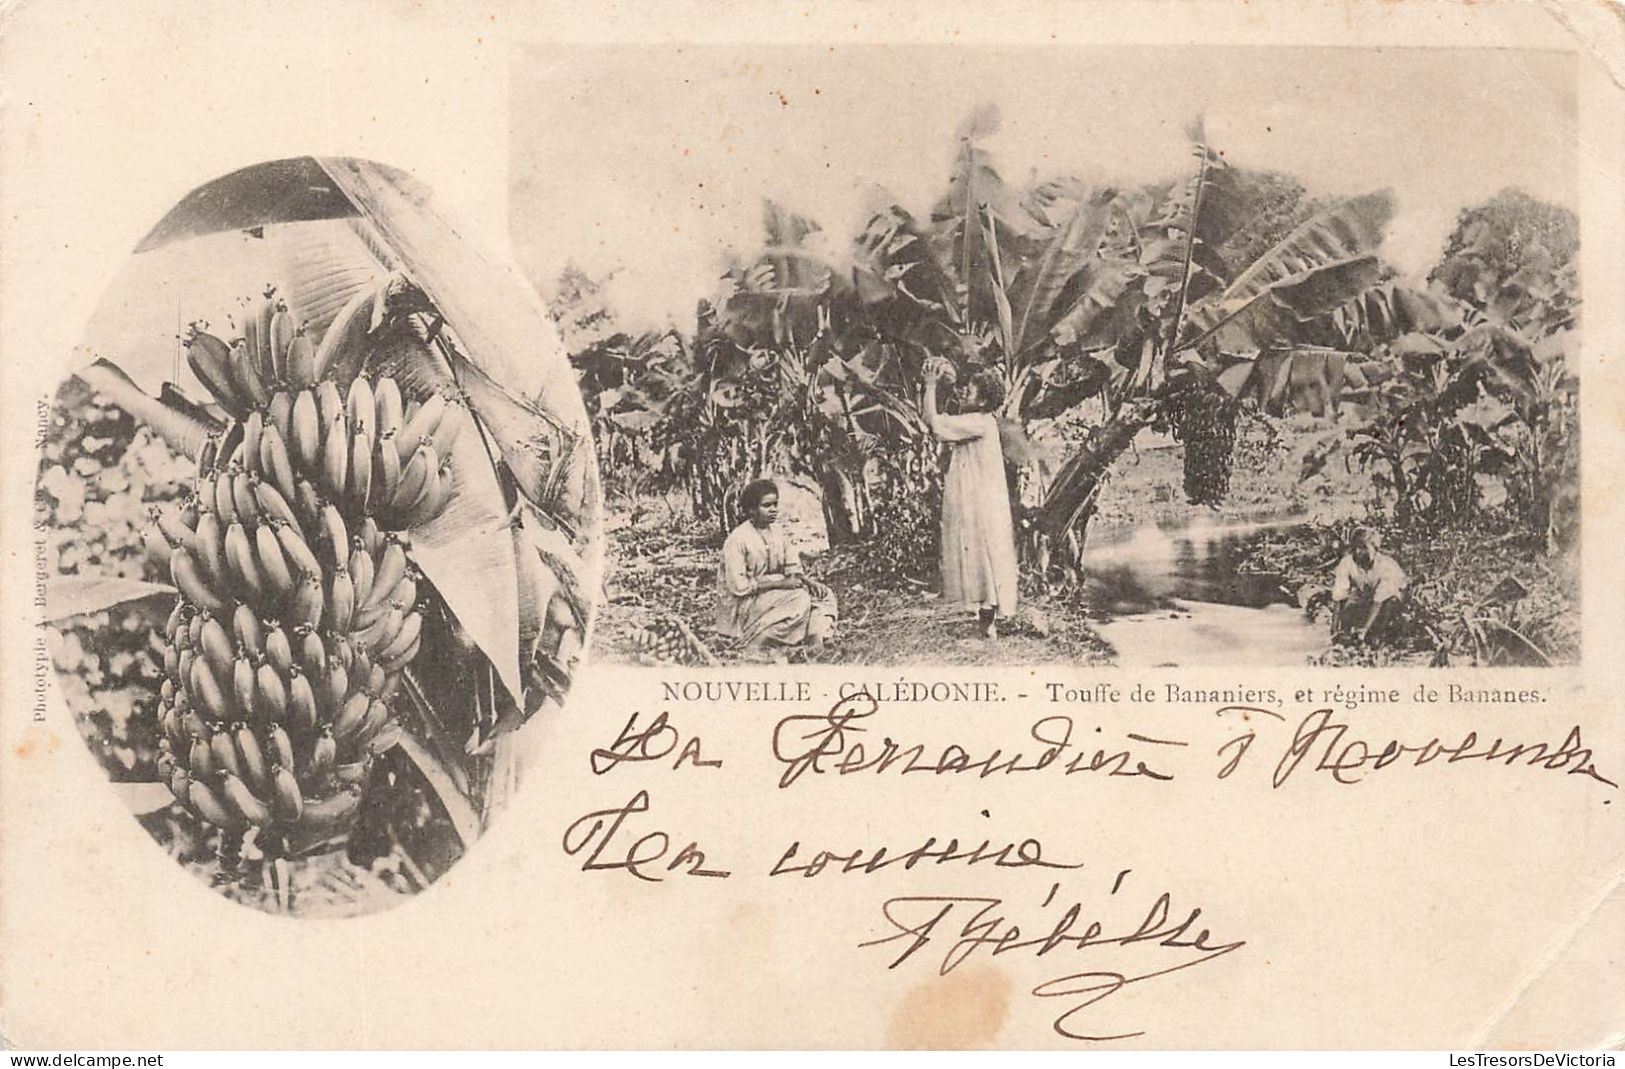 Phototypie A. Bergeret & Cie Nancy.
NOUVELLE - CALÉDONIE. - Touffe de Bananiers, et régime de Bananes.
La Ferrandière 8 Novembre
Ta cousine
LesTresorsDeVictoria
delcampe.net